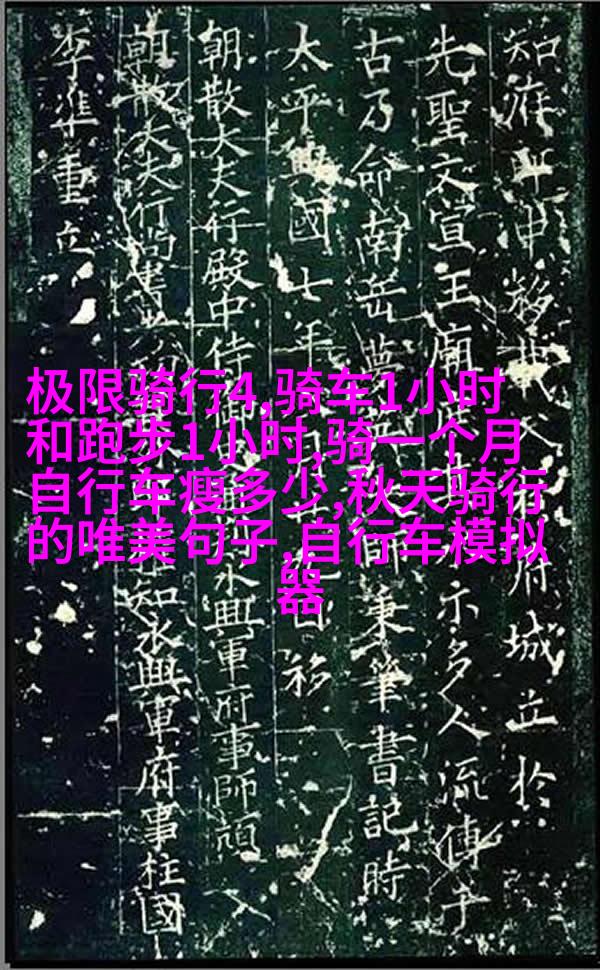 知府申移府城立於
先聖文宣王廟示多人流傳千
古乃命南岳夢師秉筆書記時
太平興國七年移
朝散大夫行殿中侍御永興軍府事師頏
朝散大夫行尚書知永興軍府事柱國
李準重立
极限骑行4,骑车1小时
和跑步1小时,骑一个月
自行车瘦多少,秋天骑行
的唯美句子,自行车模拟
器